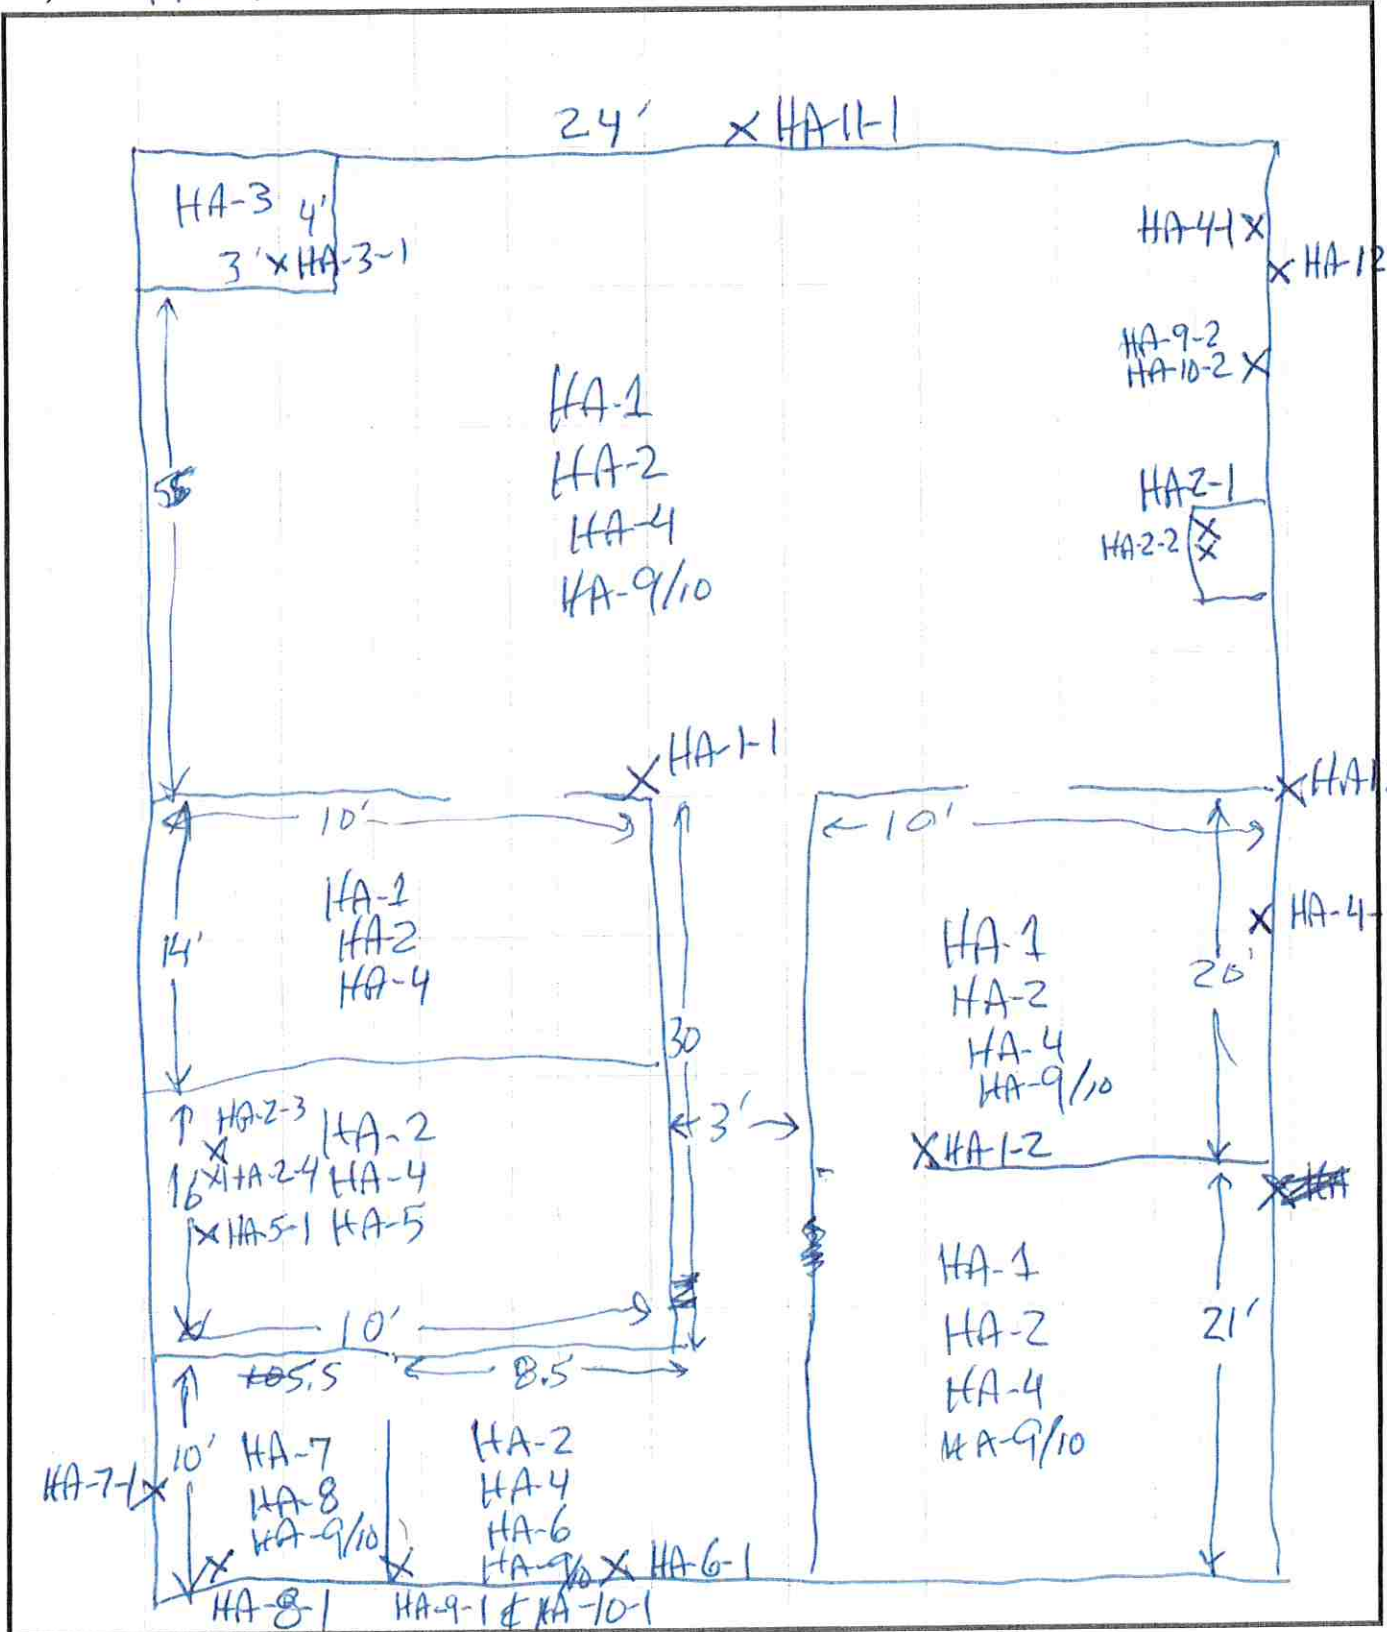 24' X HA-11-1
HA-3 4'
3' X HA-3-1
HA-4-1 X
X HA-12
HA-9-2
HA-10-2 X
HA-1
HA-2
HA-4
HA-9/10
HA2-1
HA-2-2 X
X
X HA-1-1
X HA1
10'
10'
14'
HA-1
HA-2
HA-4
30
3'
HA-1
HA-2
HA-4
HA-9/10
20'
X HA-4-
X HA-1-2
HA-2-3
X
16 X HA-2-4
X HA-5-1
HA-2
HA-4
HA-5
10'
5.5
8.5'
HA-1
HA-2
HA-4
HA-9/10
21'
HA-7-1 X
10'
HA-7
HA-8
HA-9/10
HA-2
HA-4
HA-6
HA-9/10
X HA-6-1
X
HA-8-1
X
HA-9-1 & HA-10-1